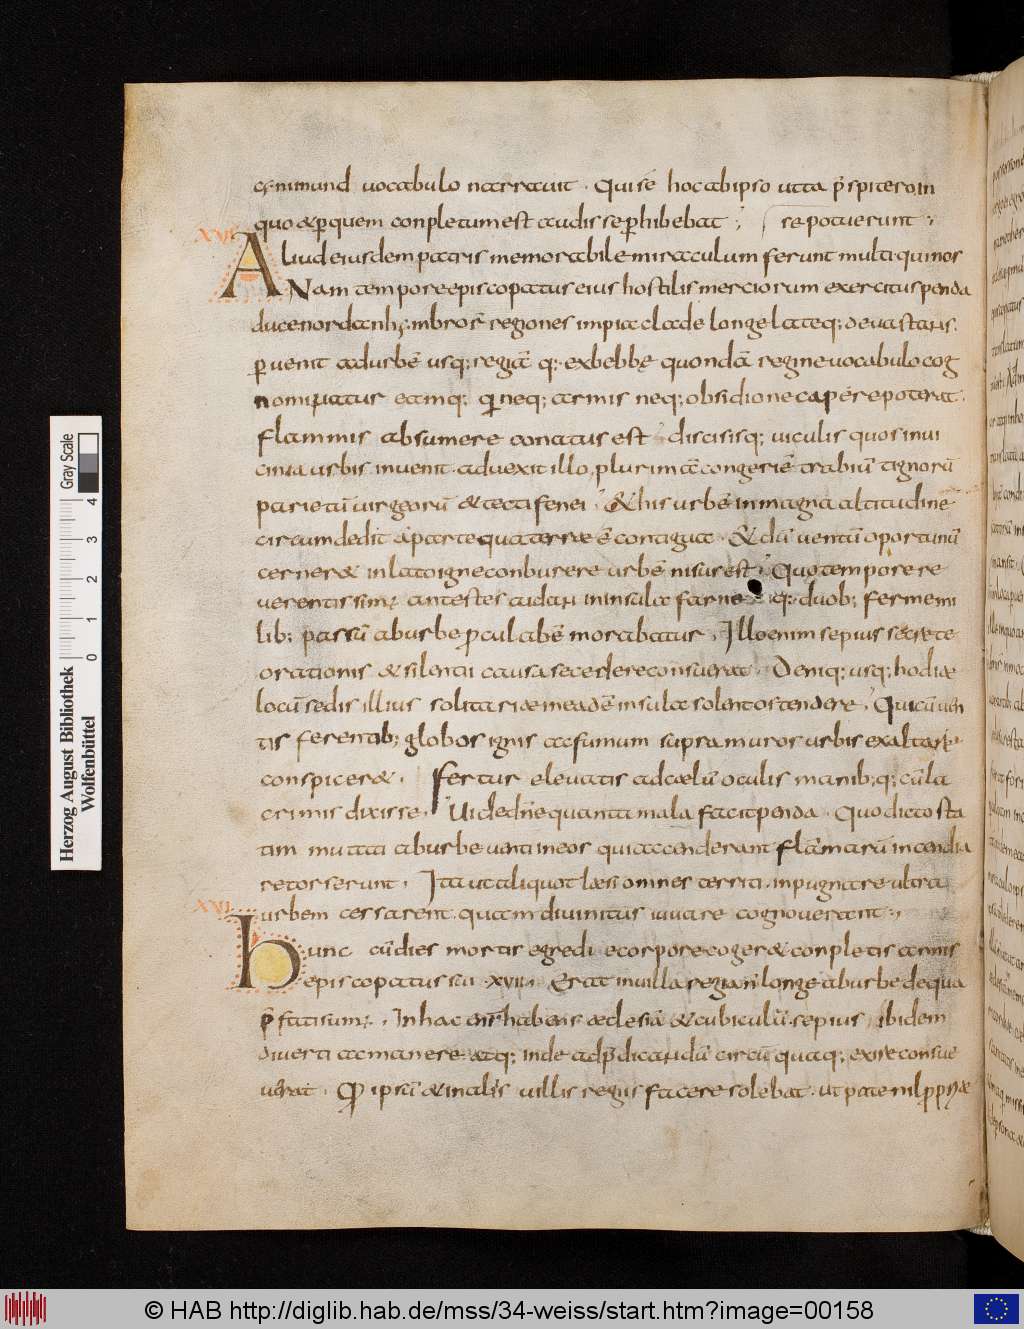 cynimund uocabulo narrauit · Qui se hoc ab ipso utta p̄spitero, in
quo & ꝑ quem conpletum est audisse ꝑhibebat ; re potuerunt ;
XV
Aliud eiusdem patris memorabile miraculum ferunt multi qui nos
Nam tempore episcopatus eius hostilis merciorum exercitus penda
duce nordanhymbrorū regiones impia clade longe lateq; deuastans.
ꝑuenit ad urbē usq; regiā q; ex bebbę quondā regine uocabulo cog
nominatur eamq; q neq; armis neq; obsidione capere poterat.
flammis absumere conatus est discisisq; uiculis quos in ui
cinia urbis inuenit aduexit illo plurimā congeriē trabiū tignorū
parietū uirgeorū & tecta fenei & his urbē in magna altitudine
circumdedit a parte qua terrae ē contigua · & dū uentū oportunū
cerner& inlato igne conburere urbē nisus est ; Quo tempore re
uerentissim; antestes aidan in insula farne q; duob; ferme mi
lib; passū ab urbe procul abē morabatur . Illo enim sepius secrete
orationis & silentii causa secedere consuerat . Deniq; usq; hodiae
locū sedis illius solitariae in eadē insula solent ostendere , Qui cū uen
tis ferentib; globos ignis ac fumum supra muros urbis exaltari
conspicer& . fertur eleuatis ad caelū oculis manib;q; cū la
crimis dixisse, Uide dn̄e quanta mala facit penda · Quo dicto sta
tim mutati ab urbe uenti in eos qui accenderant flāmarū incendia
retorserunt . Ita ut aliquot laesi omnes territi . inpugnare ultra
urbem cessarent quam diuinitus iuuare cognouerant ;
XVI
hunc cū dies mortis egredi e corpore coger& conpletis annis
episcopatus sui ·xvii· Erat in uilla regia n̄ longe ab urbe de qua
p̄fati sum; . In hac enī habens aeclesiā & cubiculū sepius ibidem
diuerti ac manere atq; inde ad p̄dicandū circū quaq; exire consue
uerat . Q ipsū & in aliis uillis regiis facere solebat . ut pate nil ꝓpriae
Gray Scale
4
3
2
1
0
Herzog August Bibliothek
Wolfenbüttel
© HAB http://diglib.hab.de/mss/34-weiss/start.htm?image=00158